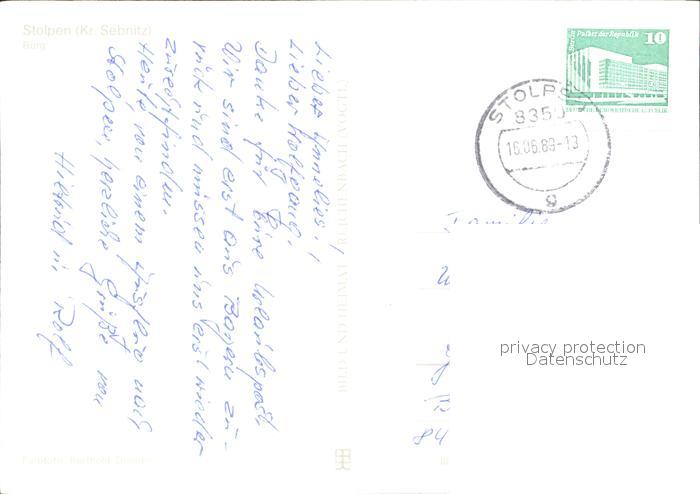 Stolpen (Kr. Sebnitz)
Burg
Liebe Annelies!,
Lieber Wolfgang,
Danke für Eure Urlaubspost.
Wir sind erst aus Bayern zu-
rück und müssen uns erst wieder
zurechtfinden.
Heute von einem Ausflug nach
Stolpen, herzliche Grüße von
Hiltrud u. Rolf
BILD UND HEIMAT REICHENBACH (VOGTL)
Berlin Palast der Republik
10
DEUTSCHE DEMOKRATISCHE REPUBLIK
STOLPEN
8350
16.06.89-13
g
Familie
84
privacy protection
Datenschutz
Farbfoto: Berthold, Dresden